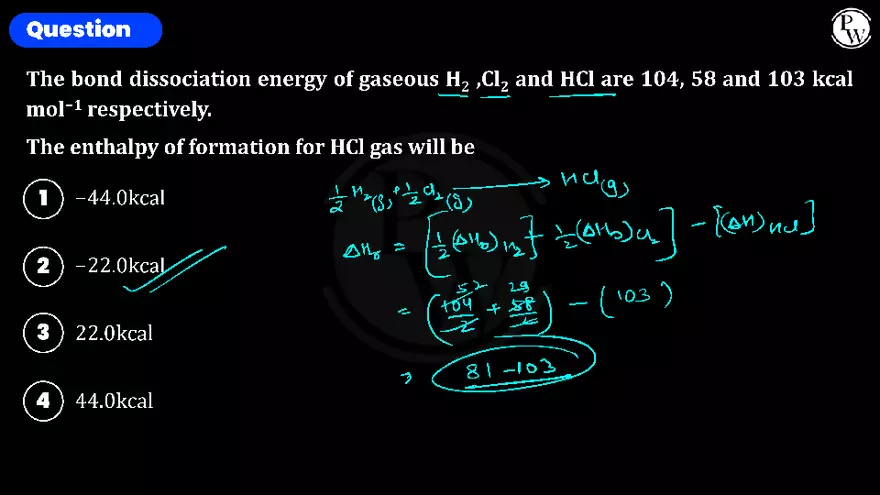 Question
PW
The bond dissociation energy of gaseous H₂ ,Cl₂ and HCl are 104, 58 and 103 kcal
mol⁻¹ respectively.
The enthalpy of formation for HCl gas will be
1 −44.0kcal
2 −22.0kcal
3 22.0kcal
4 44.0kcal
1/2 H₂(g) + 1/2 Cl₂(g) → HCl(g)
ΔHr = [1/2 (ΔHD)H₂ + 1/2 (ΔHD)Cl₂] − [(ΔH)HCl]
52 29
= (104/2 + 58/2) − (103)
⇒ 81 − 103